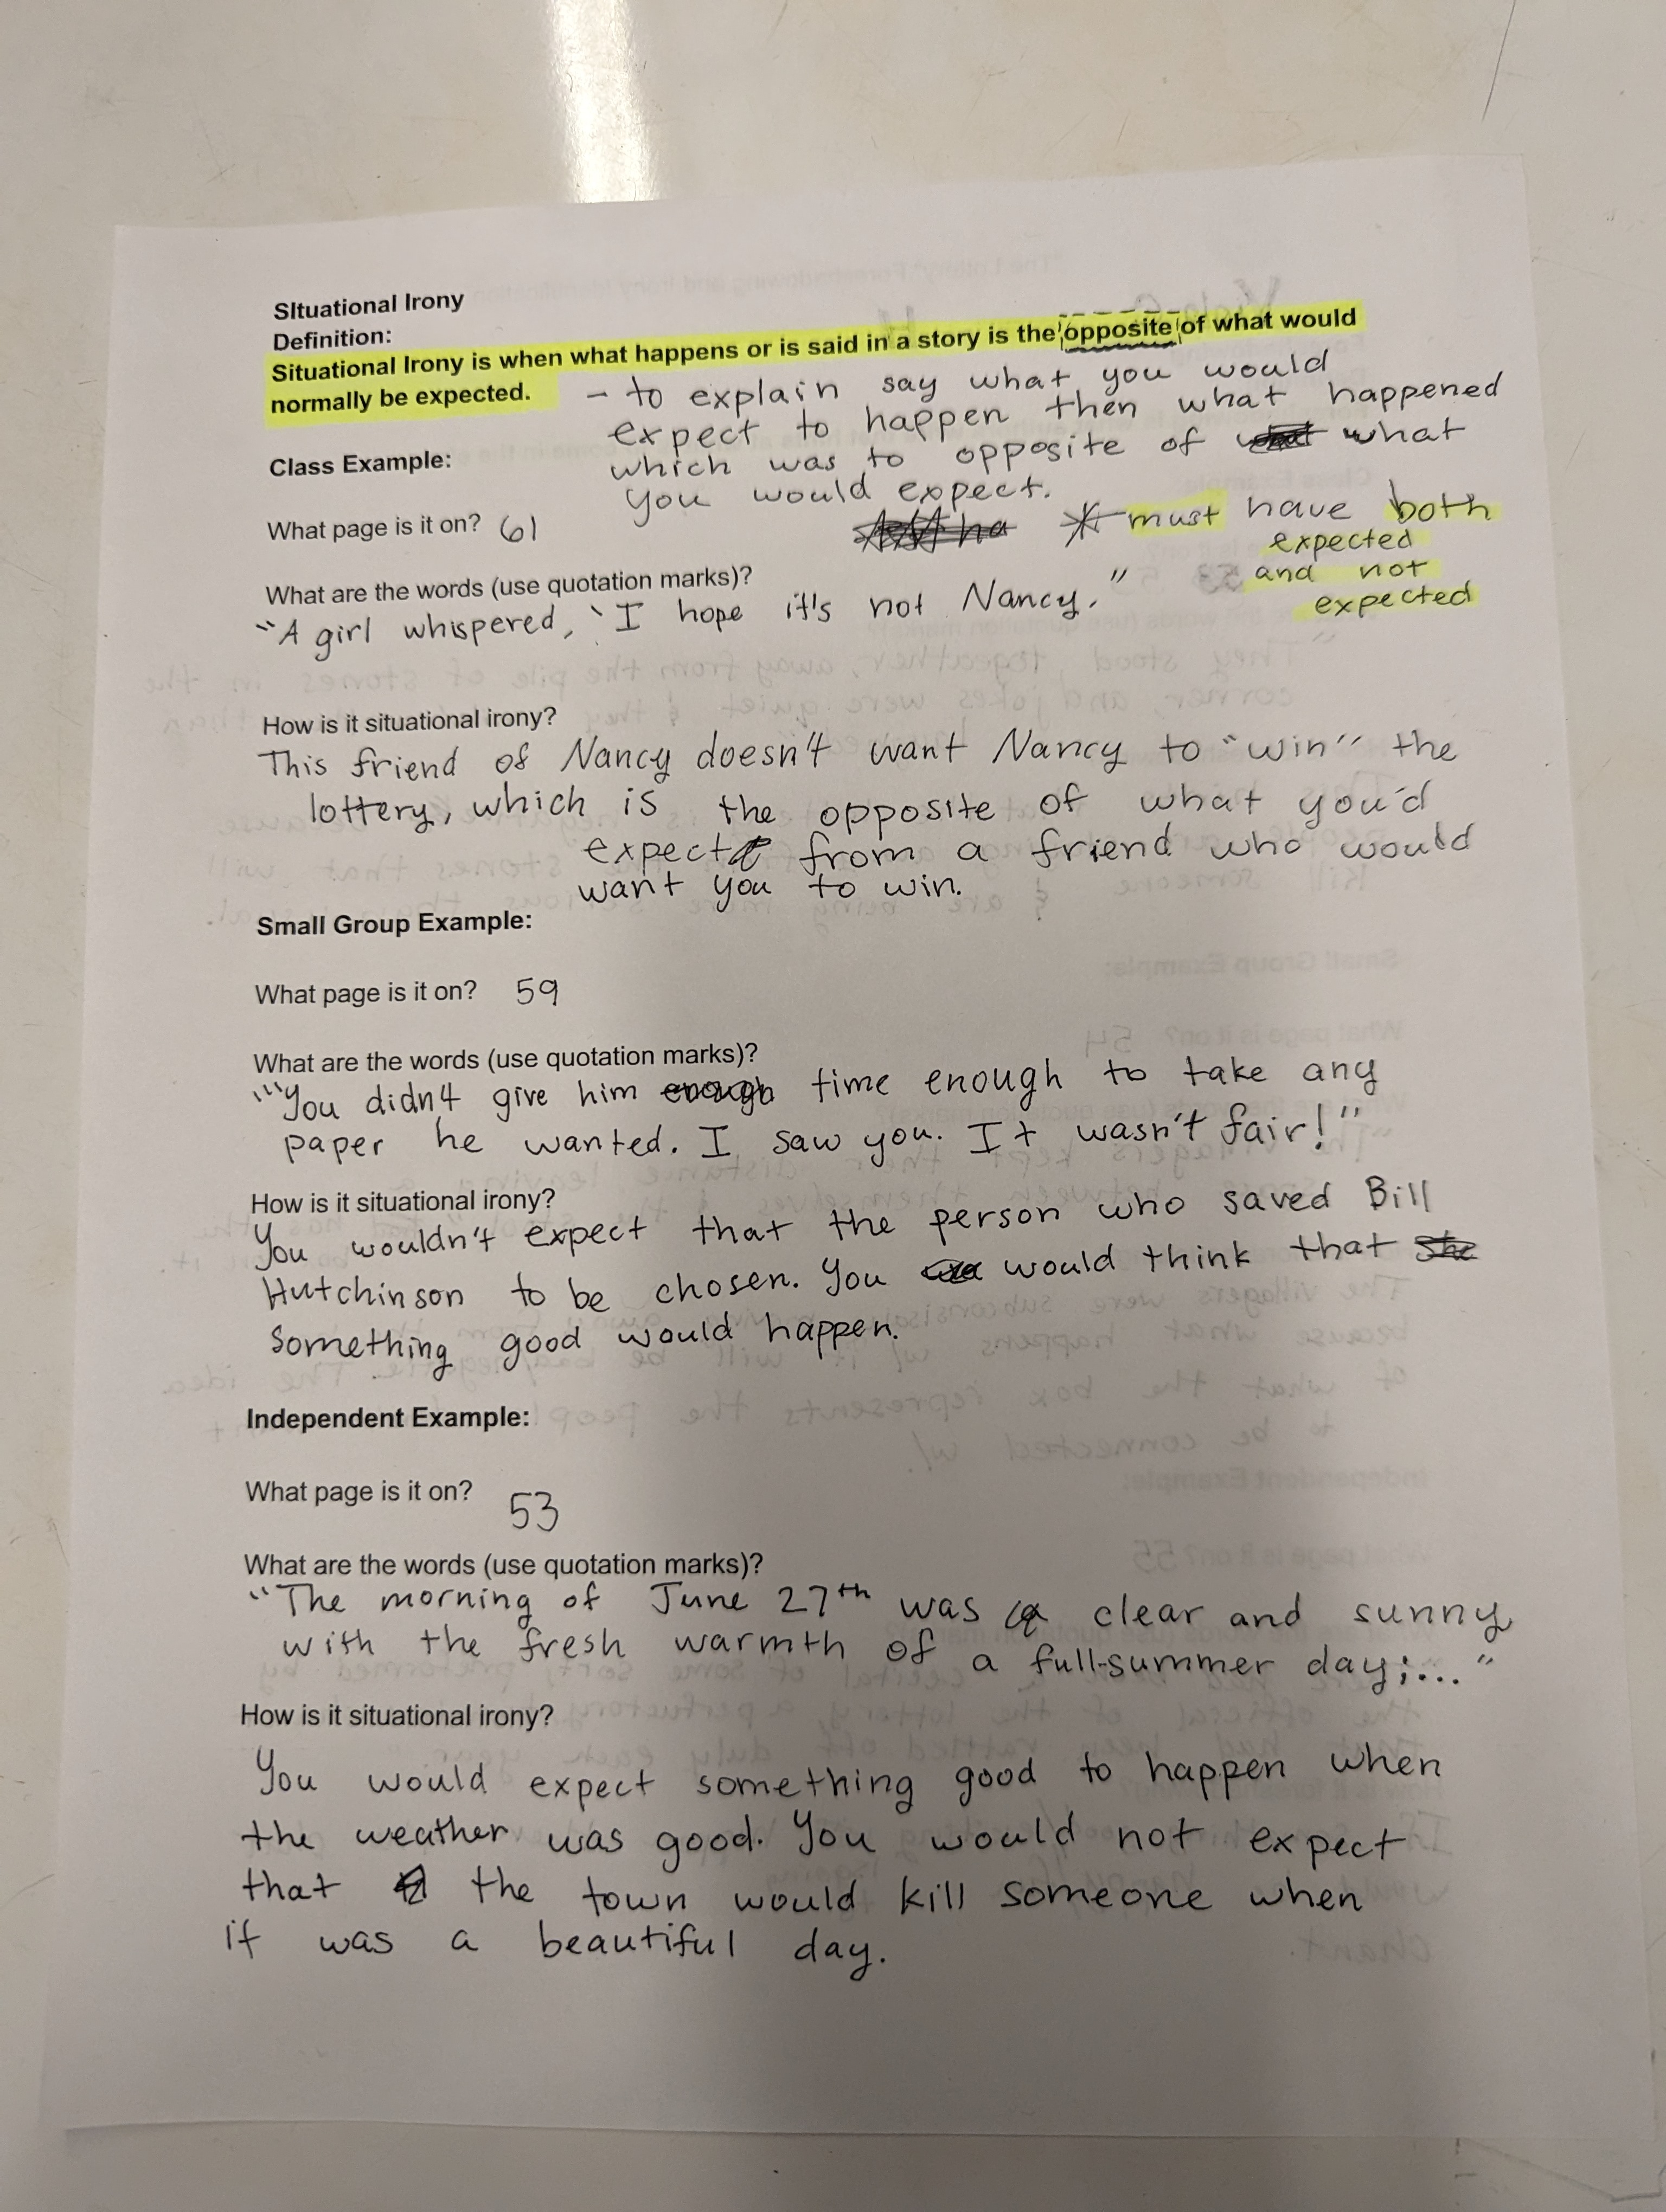 SItuational Irony
Definition:
Situational Irony is when what happens or is said in a story is the opposite of what would
normally be expected.
- to explain say what you would
expect to happen then what happened
which was to opposite of what
you would expect.
Class Example:
What page is it on? 61
* must have both
expected
and not
expected
What are the words (use quotation marks)?
"A girl whispered, 'I hope it's not Nancy."
How is it situational irony?
This friend of Nancy doesn't want Nancy to "win" the
lottery, which is the opposite of what you'd
expect from a friend who would
want you to win.
Small Group Example:
What page is it on? 59
What are the words (use quotation marks)?
"'You didn't give him enough time enough to take any
paper he wanted. I saw you. It wasn't fair!"
How is it situational irony?
You wouldn't expect that the person who saved Bill
Hutchinson to be chosen. You would think that she
something good would happen.
Independent Example:
What page is it on? 53
What are the words (use quotation marks)?
"The morning of June 27th was clear and sunny
with the fresh warmth of a full-summer day;..."
How is it situational irony?
You would expect something good to happen when
the weather was good. You would not expect
that the town would kill someone when
it was a beautiful day.